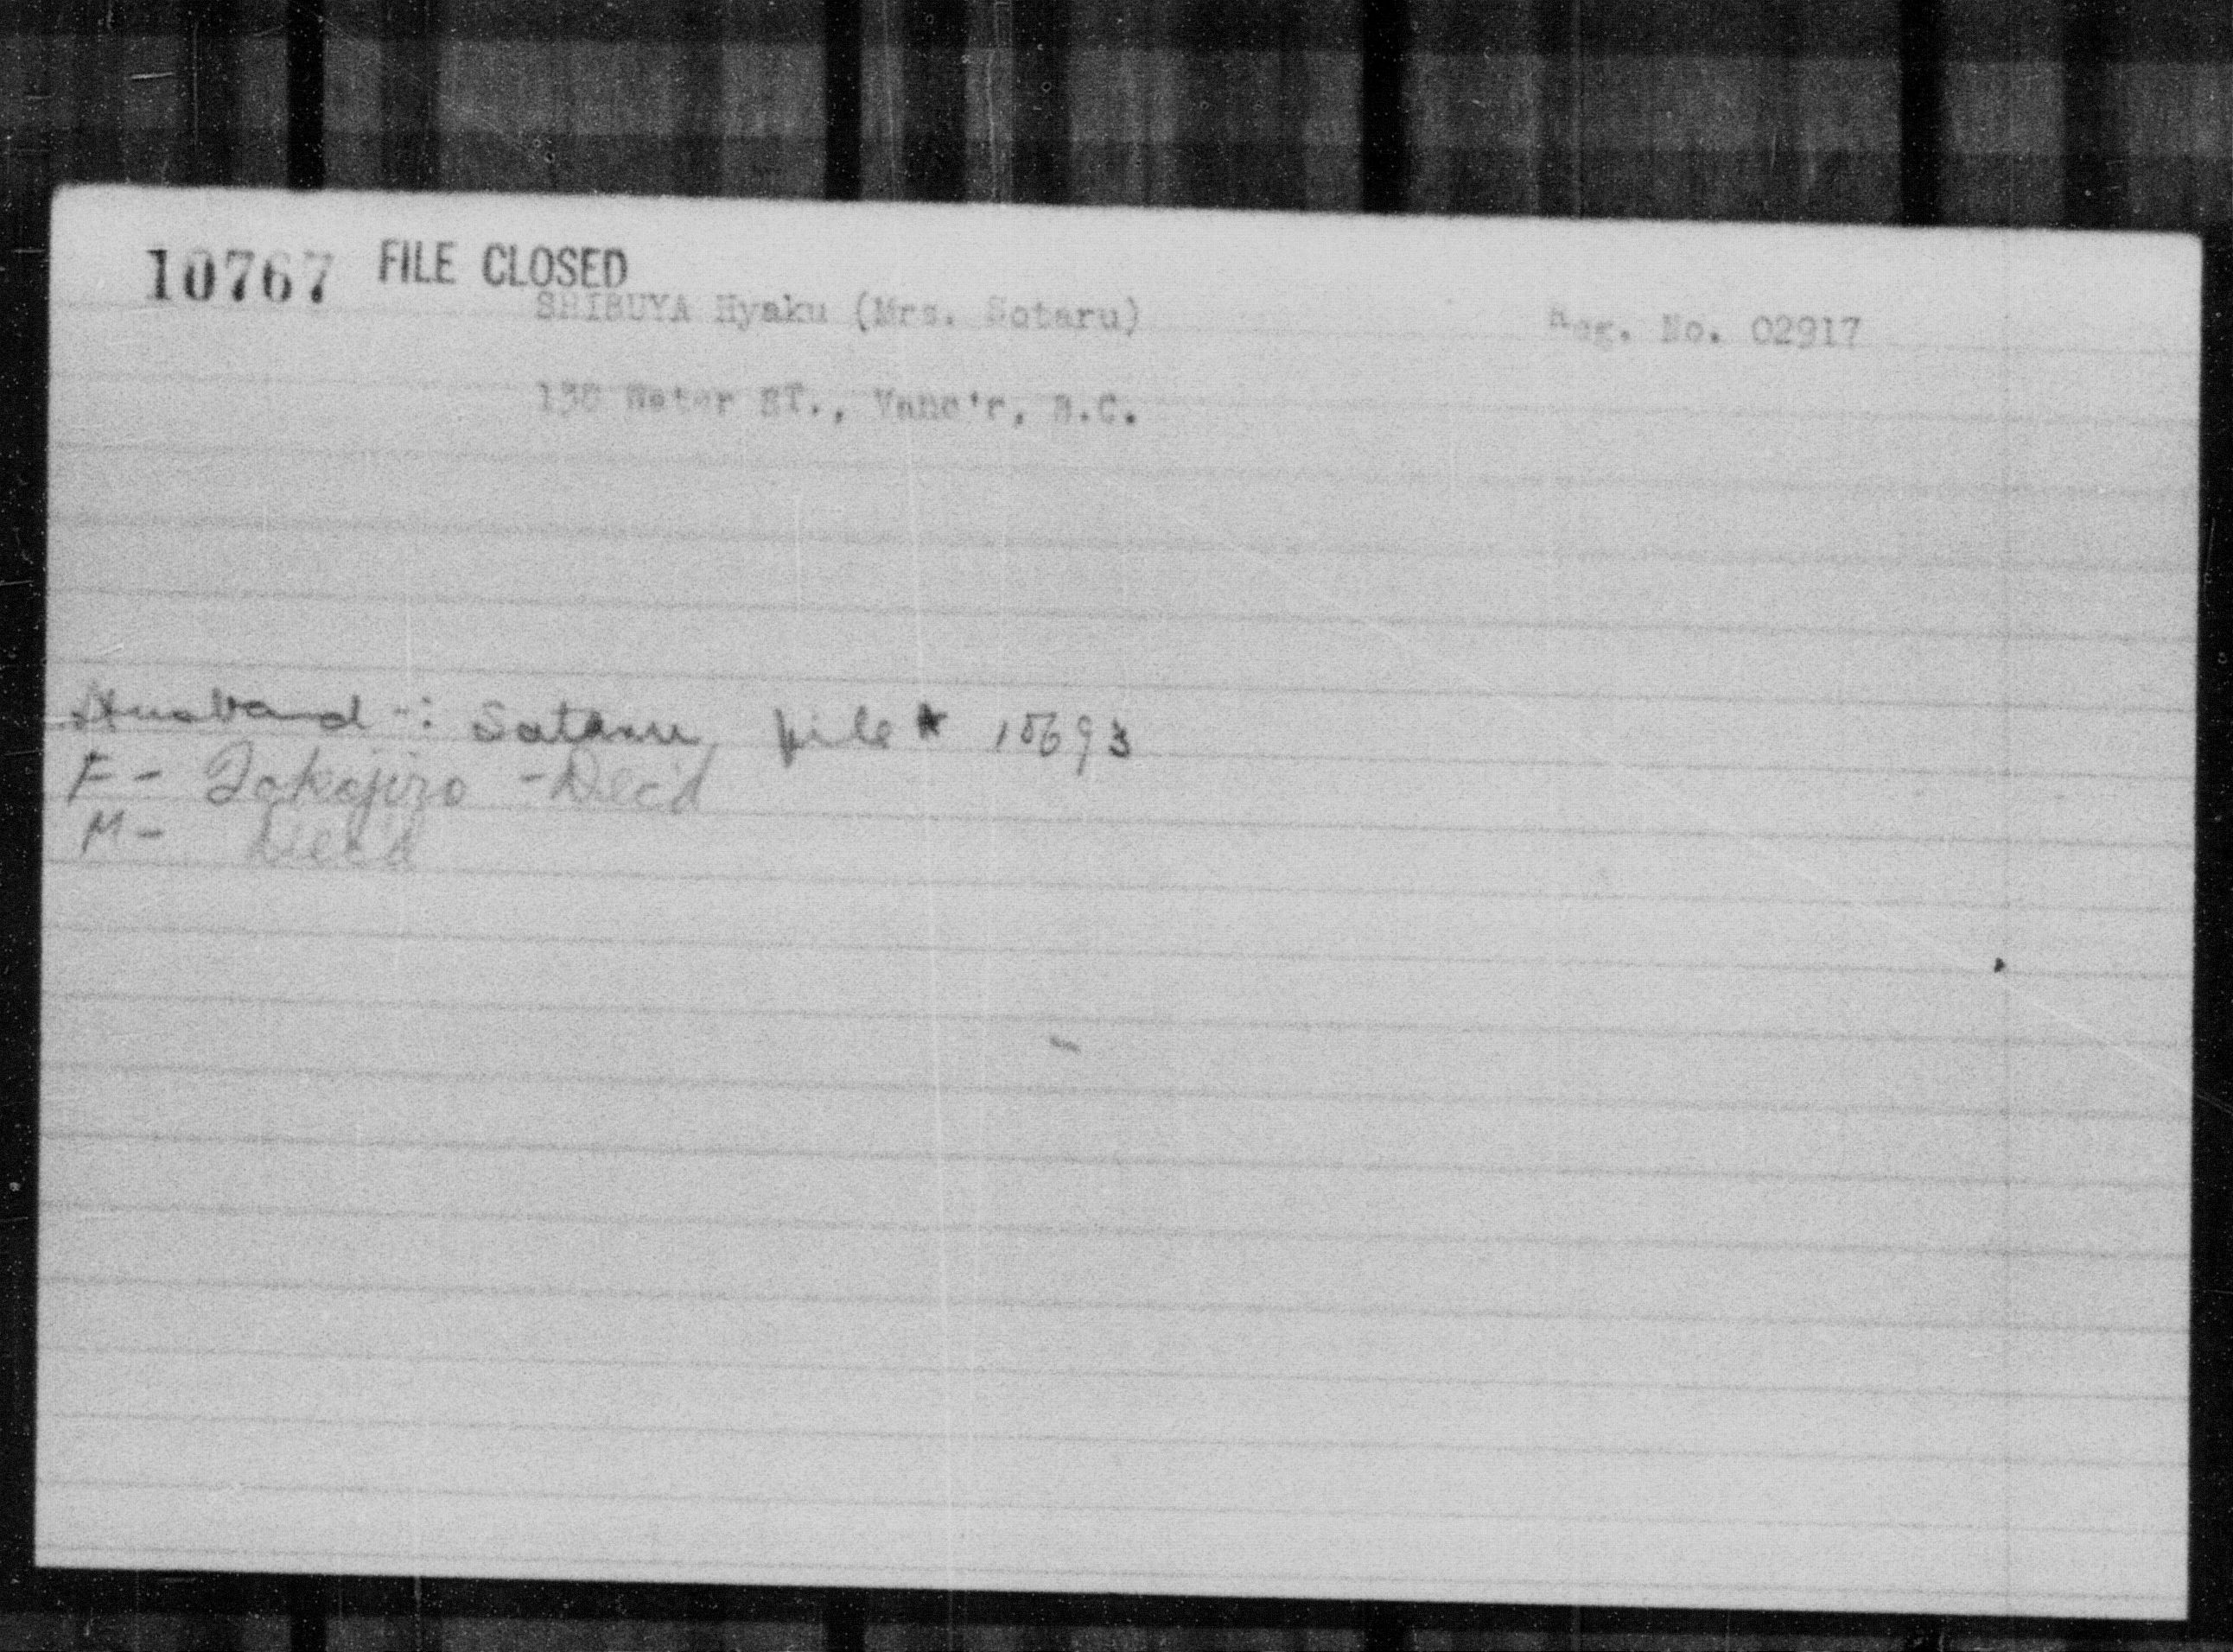 10767 FILE CLOSED
SHIBUYA Hyaku (Mrs. Sotaru) Reg. No. 02917
Water ST., Vanc'r, B.C.
Husband -: Sotaru, file # 10693
F - Takajiro - Dec'd
M - Dec'd